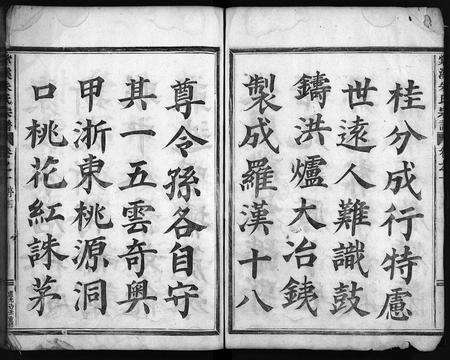 桂分成行特慮
世遠人難識鼓
鑄洪爐大冶銕
製成羅漢十八
尊令孫各自守
其一五雲奇輿
甲浙東桃源洞
口桃花紅誅茅